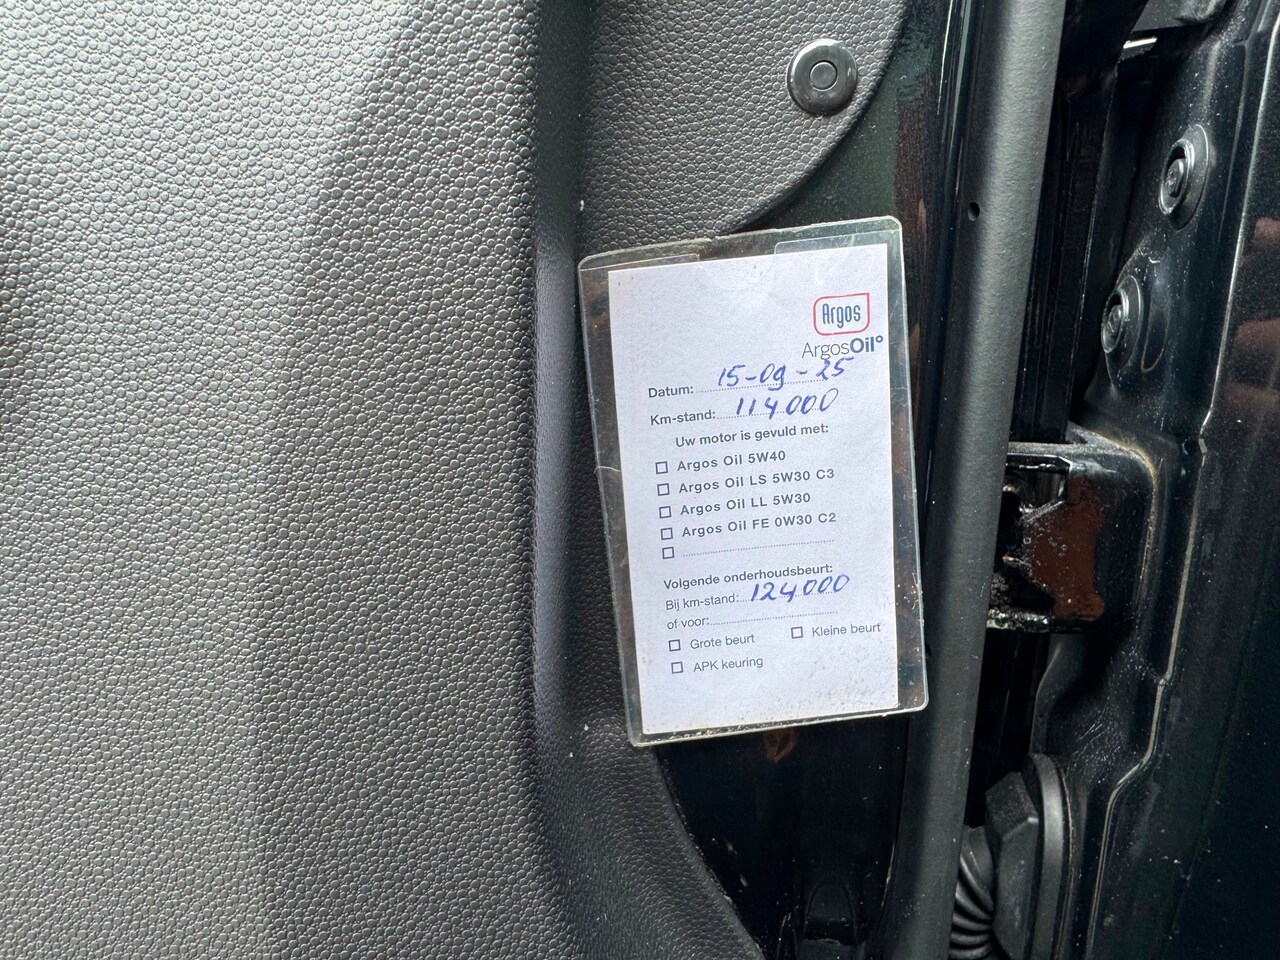 Argos
ArgosOil°
Datum: 15-09-25
Km-stand: 114000
Uw motor is gevuld met:
Argos Oil 5W40
Argos Oil LS 5W30 C3
Argos Oil LL 5W30
Argos Oil FE 0W30 C2
Volgende onderhoudsbeurt:
Bij km-stand: 124000
of voor:
Grote beurt Kleine beurt
APK keuring